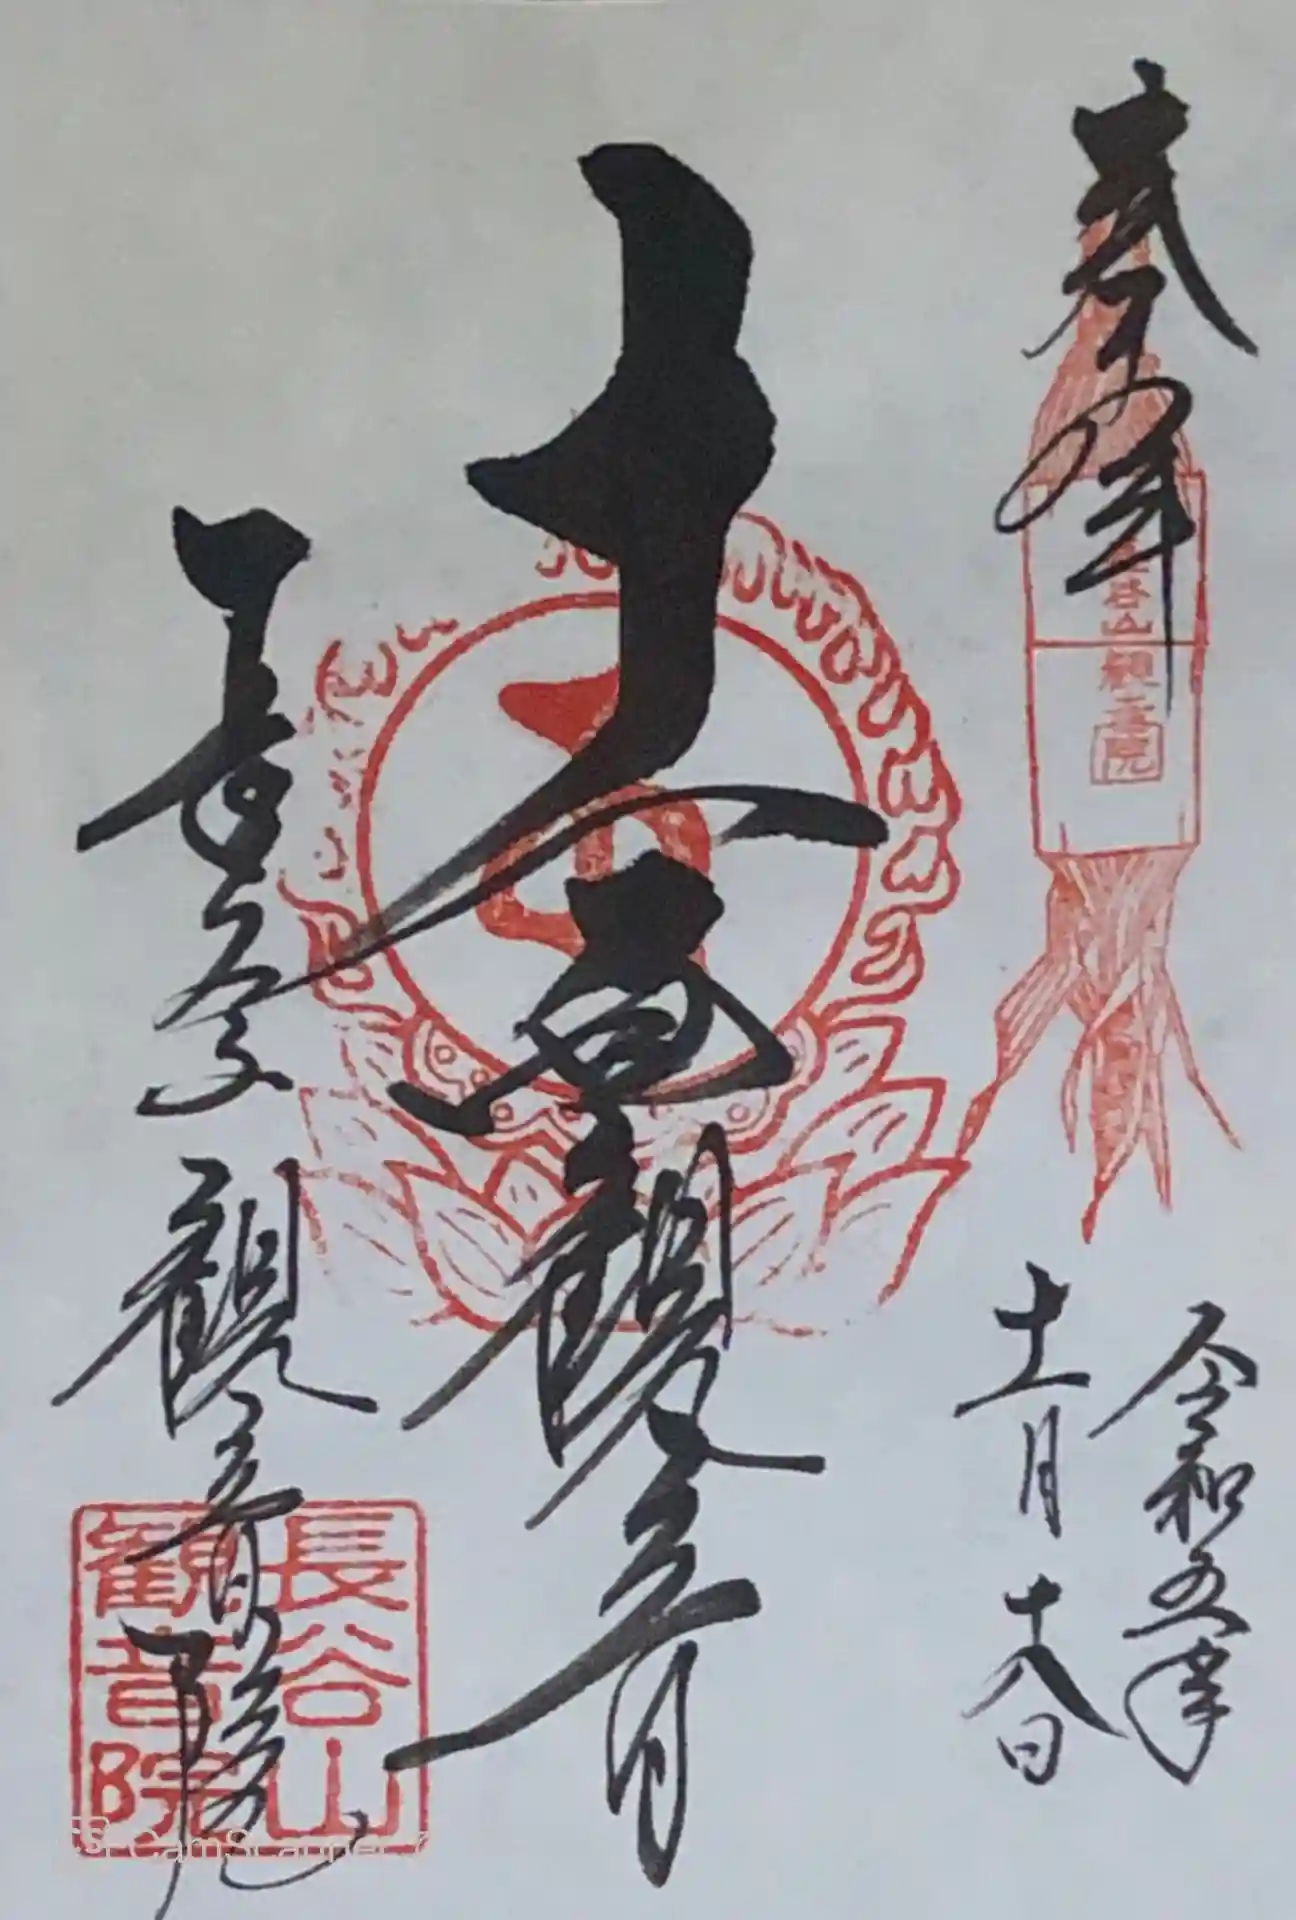 奉拝
長谷山 観音院
令和五年
十一月十八日
十一面観音
長谷寺 観音院
長谷山
観音院
CS CamScanner